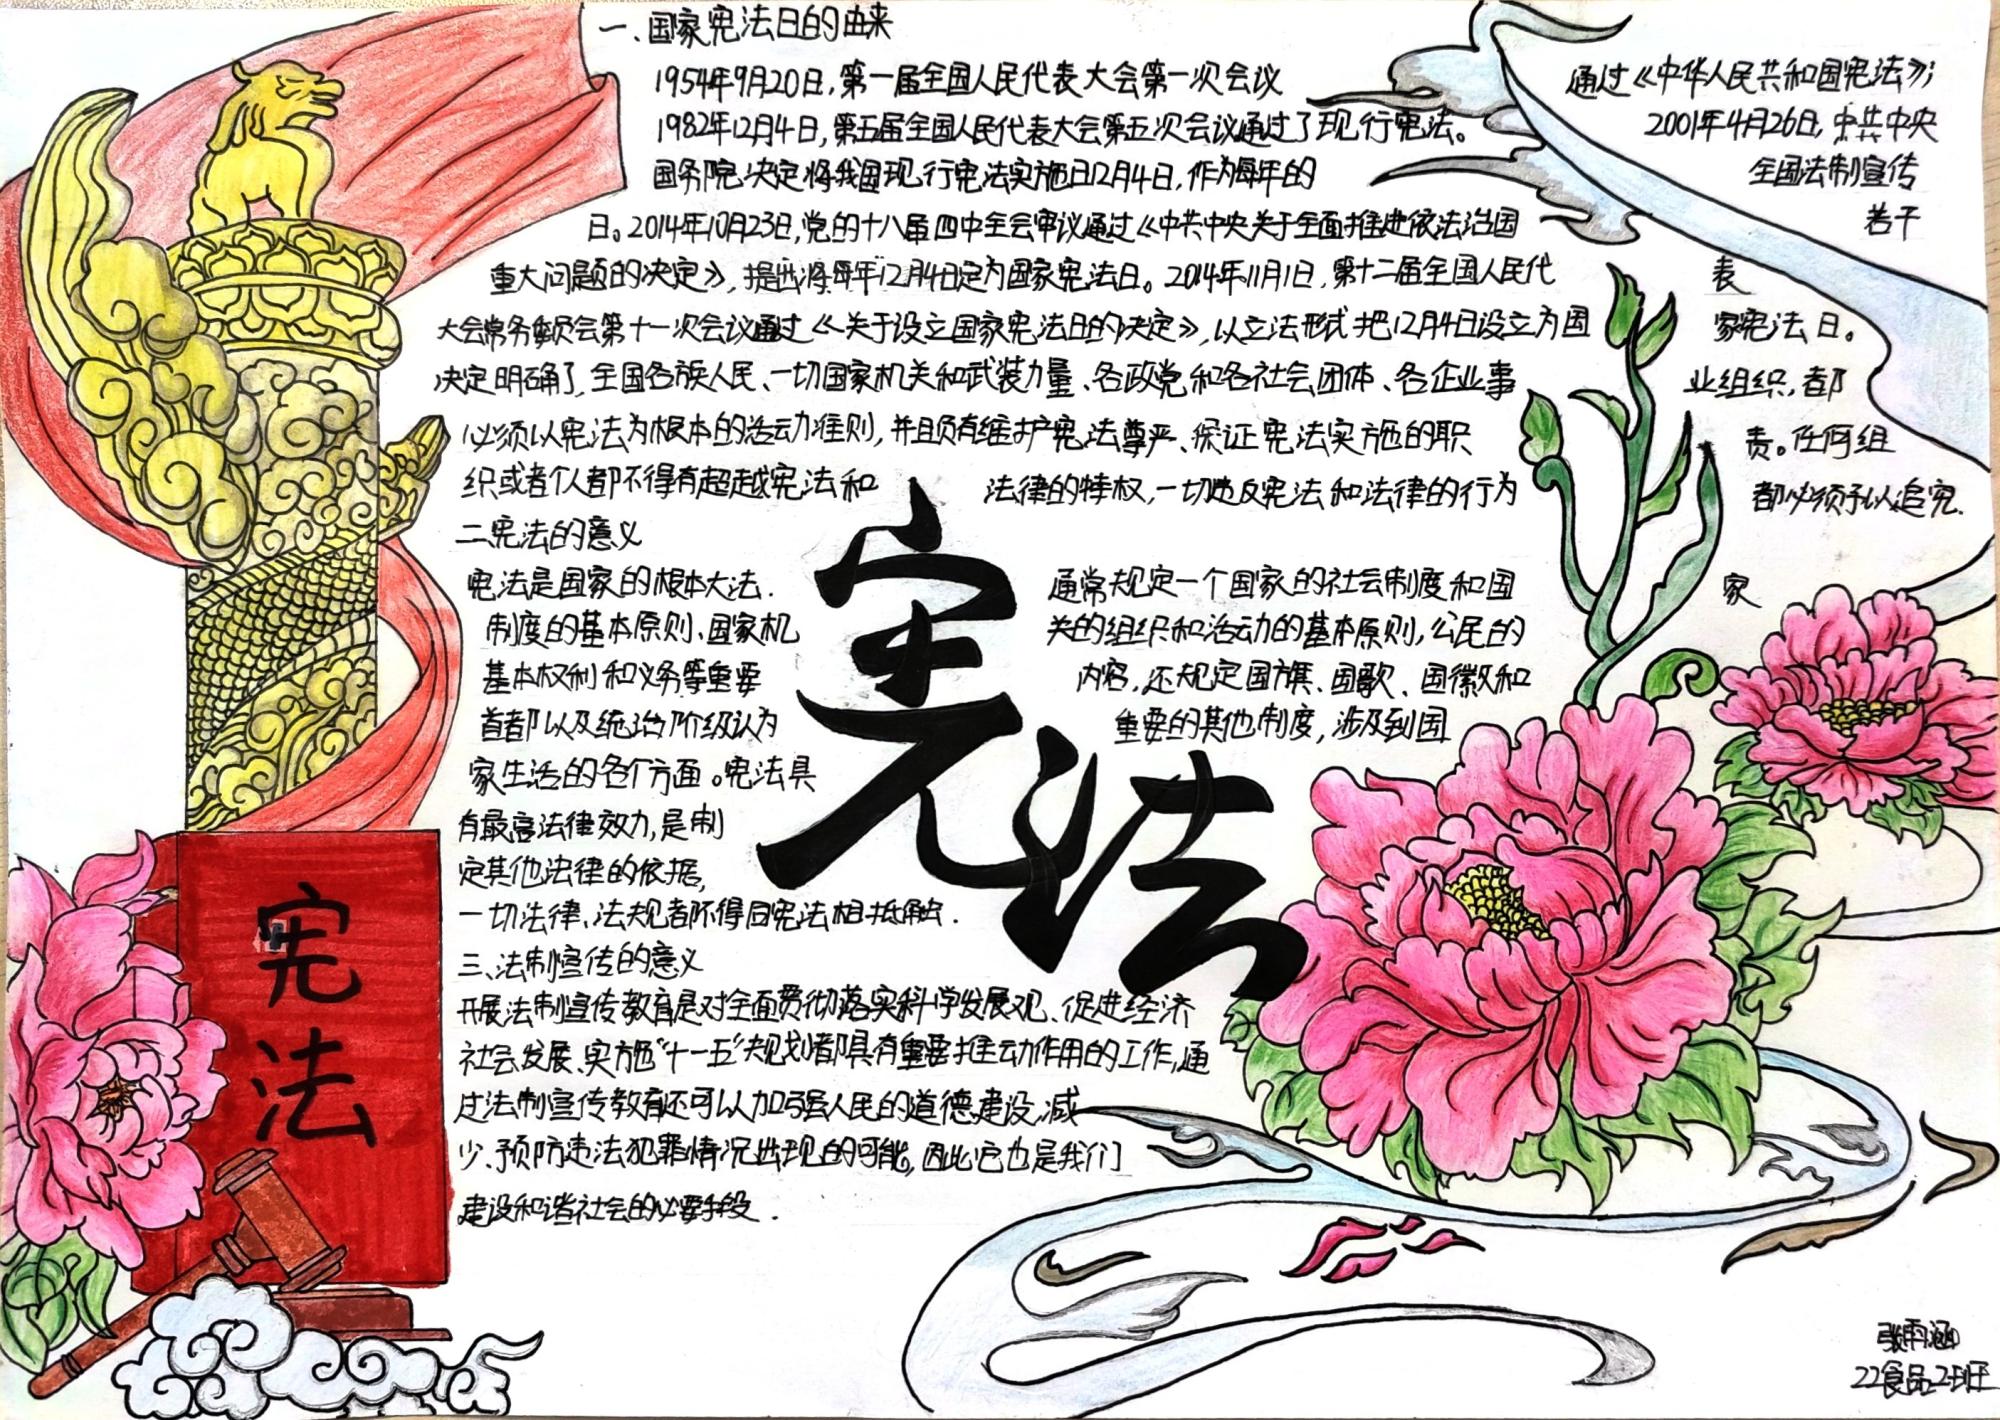 一、国家宪法日的由来
1954年9月20日,第一届全国人民代表大会第一次会议 通过《中华人民共和国宪法》;
1982年12月4日,第五届全国人民代表大会第五次会议通过了现行宪法。 2001年4月26日,中共中央
国务院决定将我国现行宪法实施日12月4日,作为每年的 全国法制宣传
日。2014年10月23日,党的十八届四中全会审议通过《中共中央关于全面推进依法治国 若干
重大问题的决定》,提出将每年12月4日定为国家宪法日。2014年11月1日,第十二届全国人民代 表
大会常务委员会第十一次会议通过《关于设立国家宪法日的决定》,以立法形式把12月4日设立为国 家宪法日。
决定明确了,全国各族人民、一切国家机关和武装力量、各政党和各社会团体、各企业事 业组织,都
必须以宪法为根本的活动准则,并且负有维护宪法尊严、保证宪法实施的职 责。任何组
织或者个人都不得有超越宪法和 法律的特权,一切违反宪法和法律的行为 都必须予以追究.
二、宪法的意义
宪法是国家的根本大法. 通常规定一个国家的社会制度和国 家
制度的基本原则、国家机 关的组织和活动的基本原则,公民的
基本权利和义务等重要 内容,还规定国旗、国歌、国徽和
首都以及统治阶级认为 重要的其他制度,涉及到国
家生活的各个方面。宪法具
有最高法律效力,是制
定其他法律的依据,
一切法律、法规者不得同宪法相抵触.
三、法制宣传的意义
开展法制宣传教育是对全面贯彻落实科学发展观、促进经济
社会发展、实施"十一五"规划都具有重要推动作用的工作,通
过法制宣传教育还可以加强人民的道德建设,减
少、预防违法犯罪情况出现的可能,因此它也是我们
建设和谐社会的必要手段.
宪法
宪
法
张雨涵
22食品2班